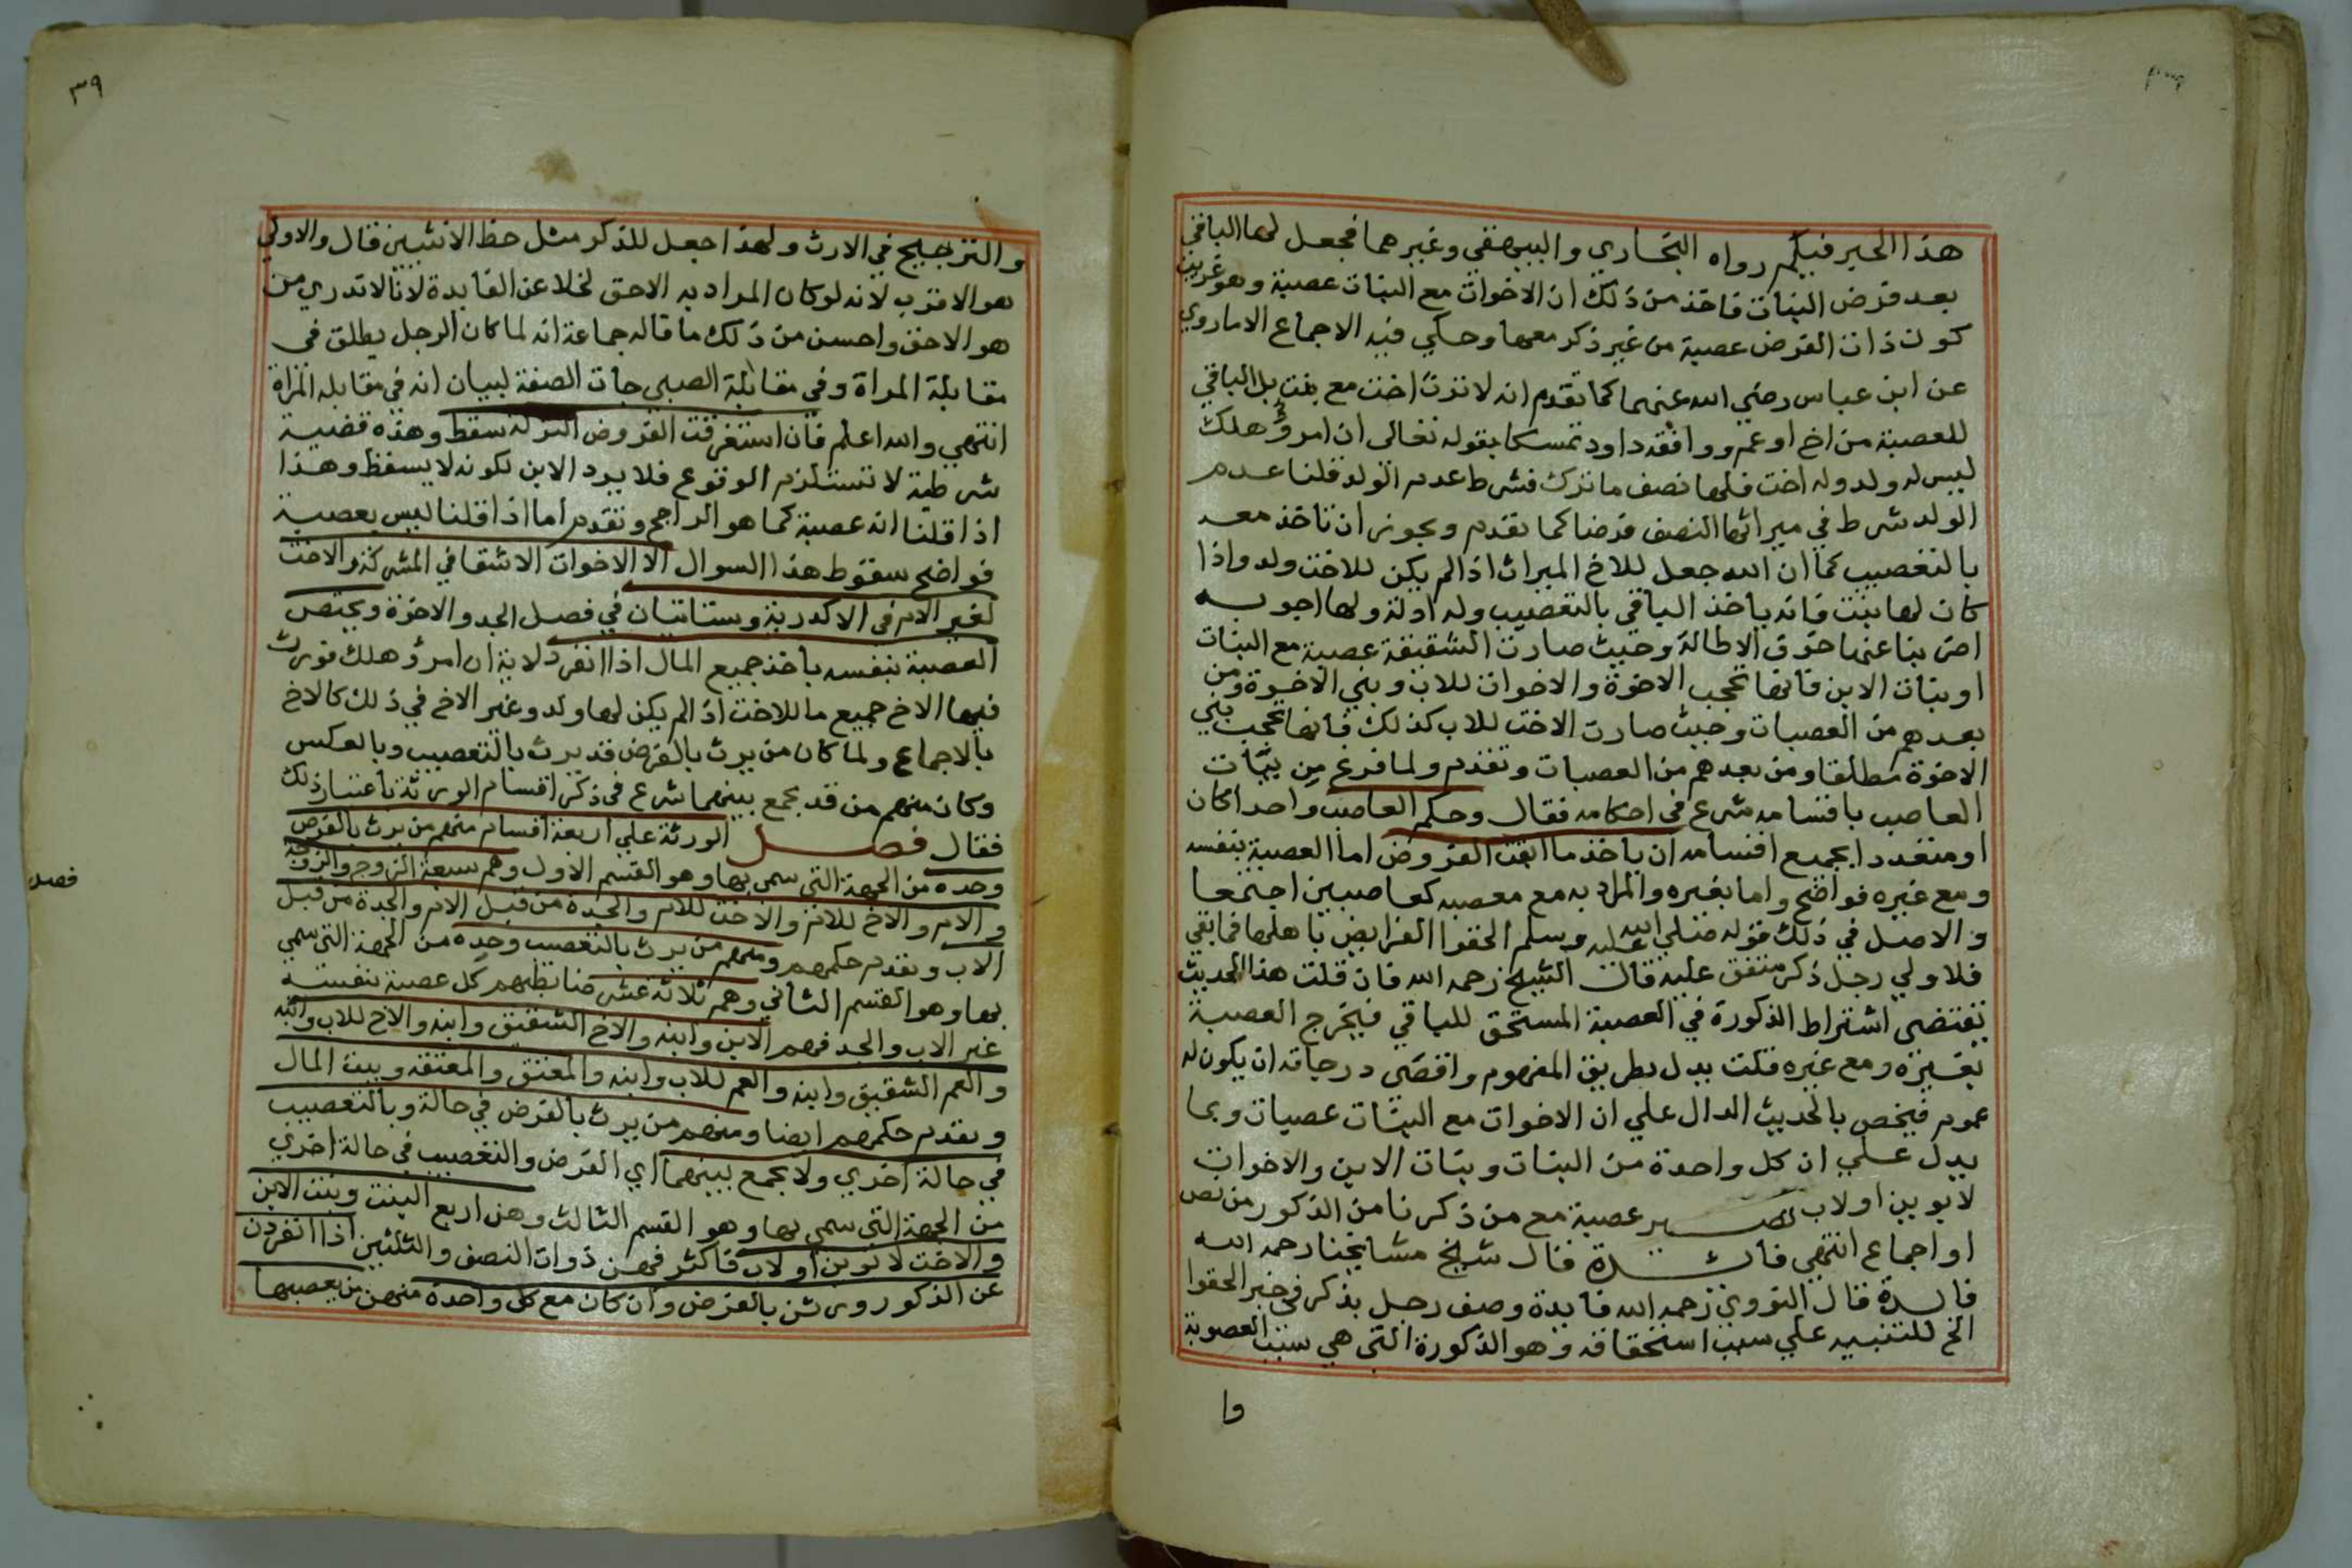 هذا الحبر فيكم رواه البخاري والبيهقي وغيرهما فجعل لها الباقي
بعد فرض البنات فاخذ من ذلك ان الاخوات مع البنات عصبة وهو غريب
كون ذات الفرض عصبة من غير ذكر معها وحكي فيه الاجماع الا ما روي
عن ابن عباس رضي الله عنهما كما تقدم انه لا ترث اخت مع بنت بل الباقي
للعصبة من اخ او عم ووافقه داود تمسكا بقوله تعالى ان امرؤ هلك
ليس له ولد وله اخت فلها نصف ما ترك فشرط عدم الولد قلنا عدم
الولد شرط في ميراثها النصف فرضا كما تقدم ويجوز ان تاخذ معه
بالتعصيب كما ان الله جعل للاخ الميراث اذا لم يكن للاخت ولد واذا
كان لها بنت فانه ياخذ الباقي بالتعصيب وله ادلة ولها اجوبه
اضربنا عنها خوف الاطالة وحيث صارت الشقيقة عصبة مع البنات
او بنات الابن فانها تحجب الاخوة والاخوات للاب وبني الاخوة ومن
بعدهم من العصبات وحيث صارت الاخت للاب كذلك فانها تحجب بني
الاخوة مطلقا ومن بعدهم من العصبات وتقدم ولما فرغ من بيان
العاصب باقسامه شرع في احكامه فقال وحكم العاصب واحدا كان
او متعددا بجميع اقسامه ان ياخذ ما ابقت الفروض اما العصبة بنفسه
ومع غيره فواضح واما بغيره والمراد به مع معصبه كعاصبين اجتمعا
والاصل في ذلك قوله صلي الله عليه وسلم الحقوا الفرايض باهلها فما بقي
فلاولي رجل ذكر متفق عليه قال الشيخ رحمه الله فان قلت هذا الحديث
يقتضي اشتراط الذكورة في العصبة المستحق للباقي فيخرج العصبة
بغيره ومع غيره قلت يدل بطريق المفهوم واقصى درجاته ان يكون له
عموم فيخص بالحديث الدال علي ان الاخوات مع البنات عصبات وبما
يدل علي ان كل واحدة من البنات وبنات الابن والاخوات
لابوين او لاب تصير عصبة مع من ذكرنا من الذكور من نص
او اجماع انتهي فائدة قال شيخ مشايخنا رحمه الله
فائدة قال النووي رحمه الله فايدة وصف رجل بذكر في خبر الحقوا
الخ للتنبيه علي سبب استحقاقه وهو الذكورة التي هي سبب العصوبة
وا
٣٩
والترجيح في الارث ولهذا جعل للذكر مثل حظ الانثيين قال والاولي
هو الاقرب لانه لو كان المراد به الاحق لخلا عن الفايدة لانا لا ندري من
هو الاحق واحسن من ذلك ما قاله جماعة انه لما كان الرجل يطلق في
مقابلة المراة وفي مقابلة الصبي جات الصفة لبيان انه في مقابله المراة
انتهي والله اعلم فان استغرقت الفروض التركة سقط وهذه قضية
شرطية لا تستلزم الوقوع فلا يرد الابن لكونه لا يسقط وهذا
اذا قلنا انه عصبة كما هو الراجح وتقدم اما اذا قلنا ليس بعصبة
فواضح سقوط هذا السوال الا الاخوات الاشقا في المشركة والاخت
لغير الام في الاكدرية وستاتيان في فصل الجد والاخوة ويختص
العصبة بنفسه ياخذ جميع المال اذا انفرد لاية ان امرؤ هلك فورث
فيها الاخ جميع ما للاخت اذا لم يكن لها ولد وغير الاخ في ذلك كالاخ
بالاجماع ولما كان من يرث بالفرض قد يرث بالتعصيب وبالعكس
وكان منهم من قد يجمع بينهما شرع في ذكر اقسام الورثة باعتبار ذلك
فقال فصل الورثة علي اربعة اقسام منهم من يرث بالفرض
فصل
وحده من الجهة التي سمي بها وهو القسم الاول وهم سبعة الزوج والزوجة
والام والاخ للام والاخت للام والجدة من قبل الام والجدة من قبل
الاب وتقدم حكمهم ومنهم من يرث بالتعصيب وحده من الجهة التي سمي
بها وهو القسم الثاني وهم ثلاثة عشر ضابطهم كل عصبة بنفسه
غير الاب والجد فهم الابن وابنه والاخ الشقيق وابنه والاخ للاب وابنه
والعم الشقيق وابنه والعم للاب وابنه والمعتق والمعتقه وبيت المال
وتقدم حكمهم ايضا ومنهم من يرث بالفرض في حالة وبالتعصيب
في حالة اخري ولا يجمع بينهما اي الفرض والتعصيب في حالة اخري
من الجهة التي سمي بها وهو القسم الثالث وهن اربع البنت وبنت الابن
والاخت لابوين او لاب فاكثر فهن ذوات النصف والثلثين اذا انفردن
عن الذكور ورثن بالفرض وان كان مع كل واحدة منهن من يعصبها